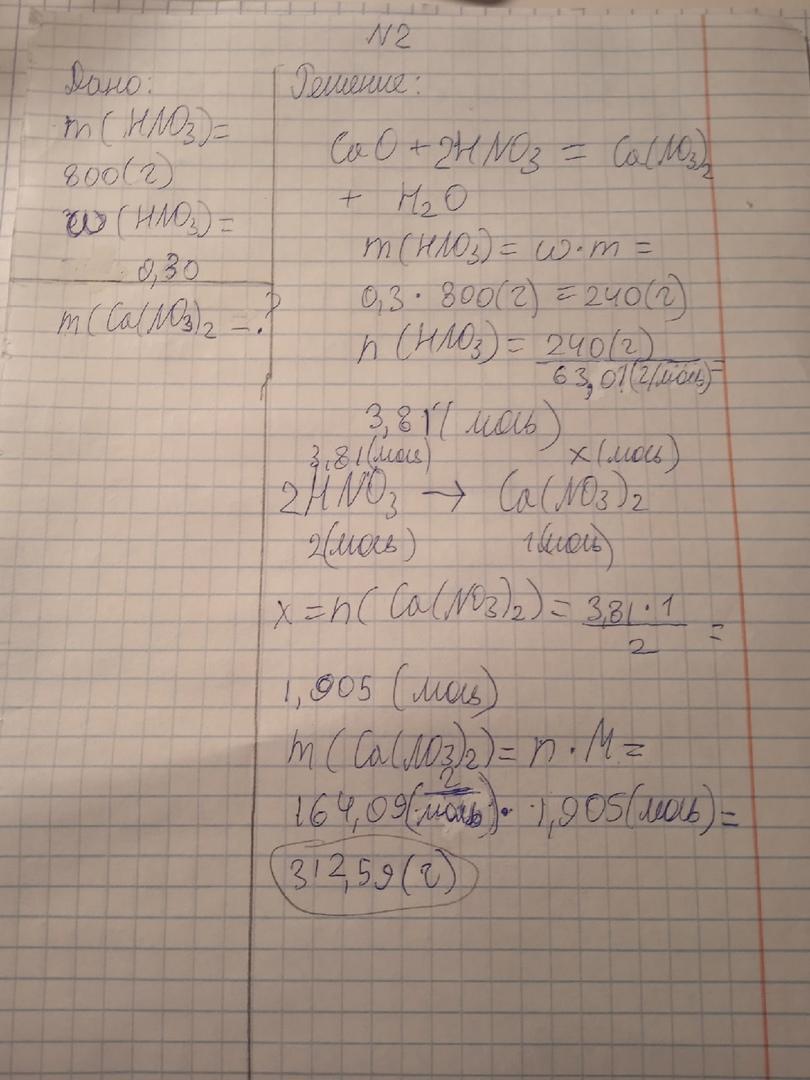 N2
Дано:
m(HNO3)=
800(г)
w(HNO3)=
0,30
m(Ca(NO3)2 -?
Решение:
CaO + 2HNO3 = Ca(NO3)2
+ H2O
m(HNO3) = w·m =
0,3 · 800(г) = 240(г)
n(HNO3) = 240(г)
63,01(г/моль) =
3,81(моль)
3,81(моль) x(моль)
2HNO3 → Ca(NO3)2
2(моль) 1(моль)
x = n(Ca(NO3)2) = 3,81·1
2 =
1,905 (моль)
m(Ca(NO3)2) = n·M =
164,09(г/моль)· 1,905(моль)=
312,59(г)